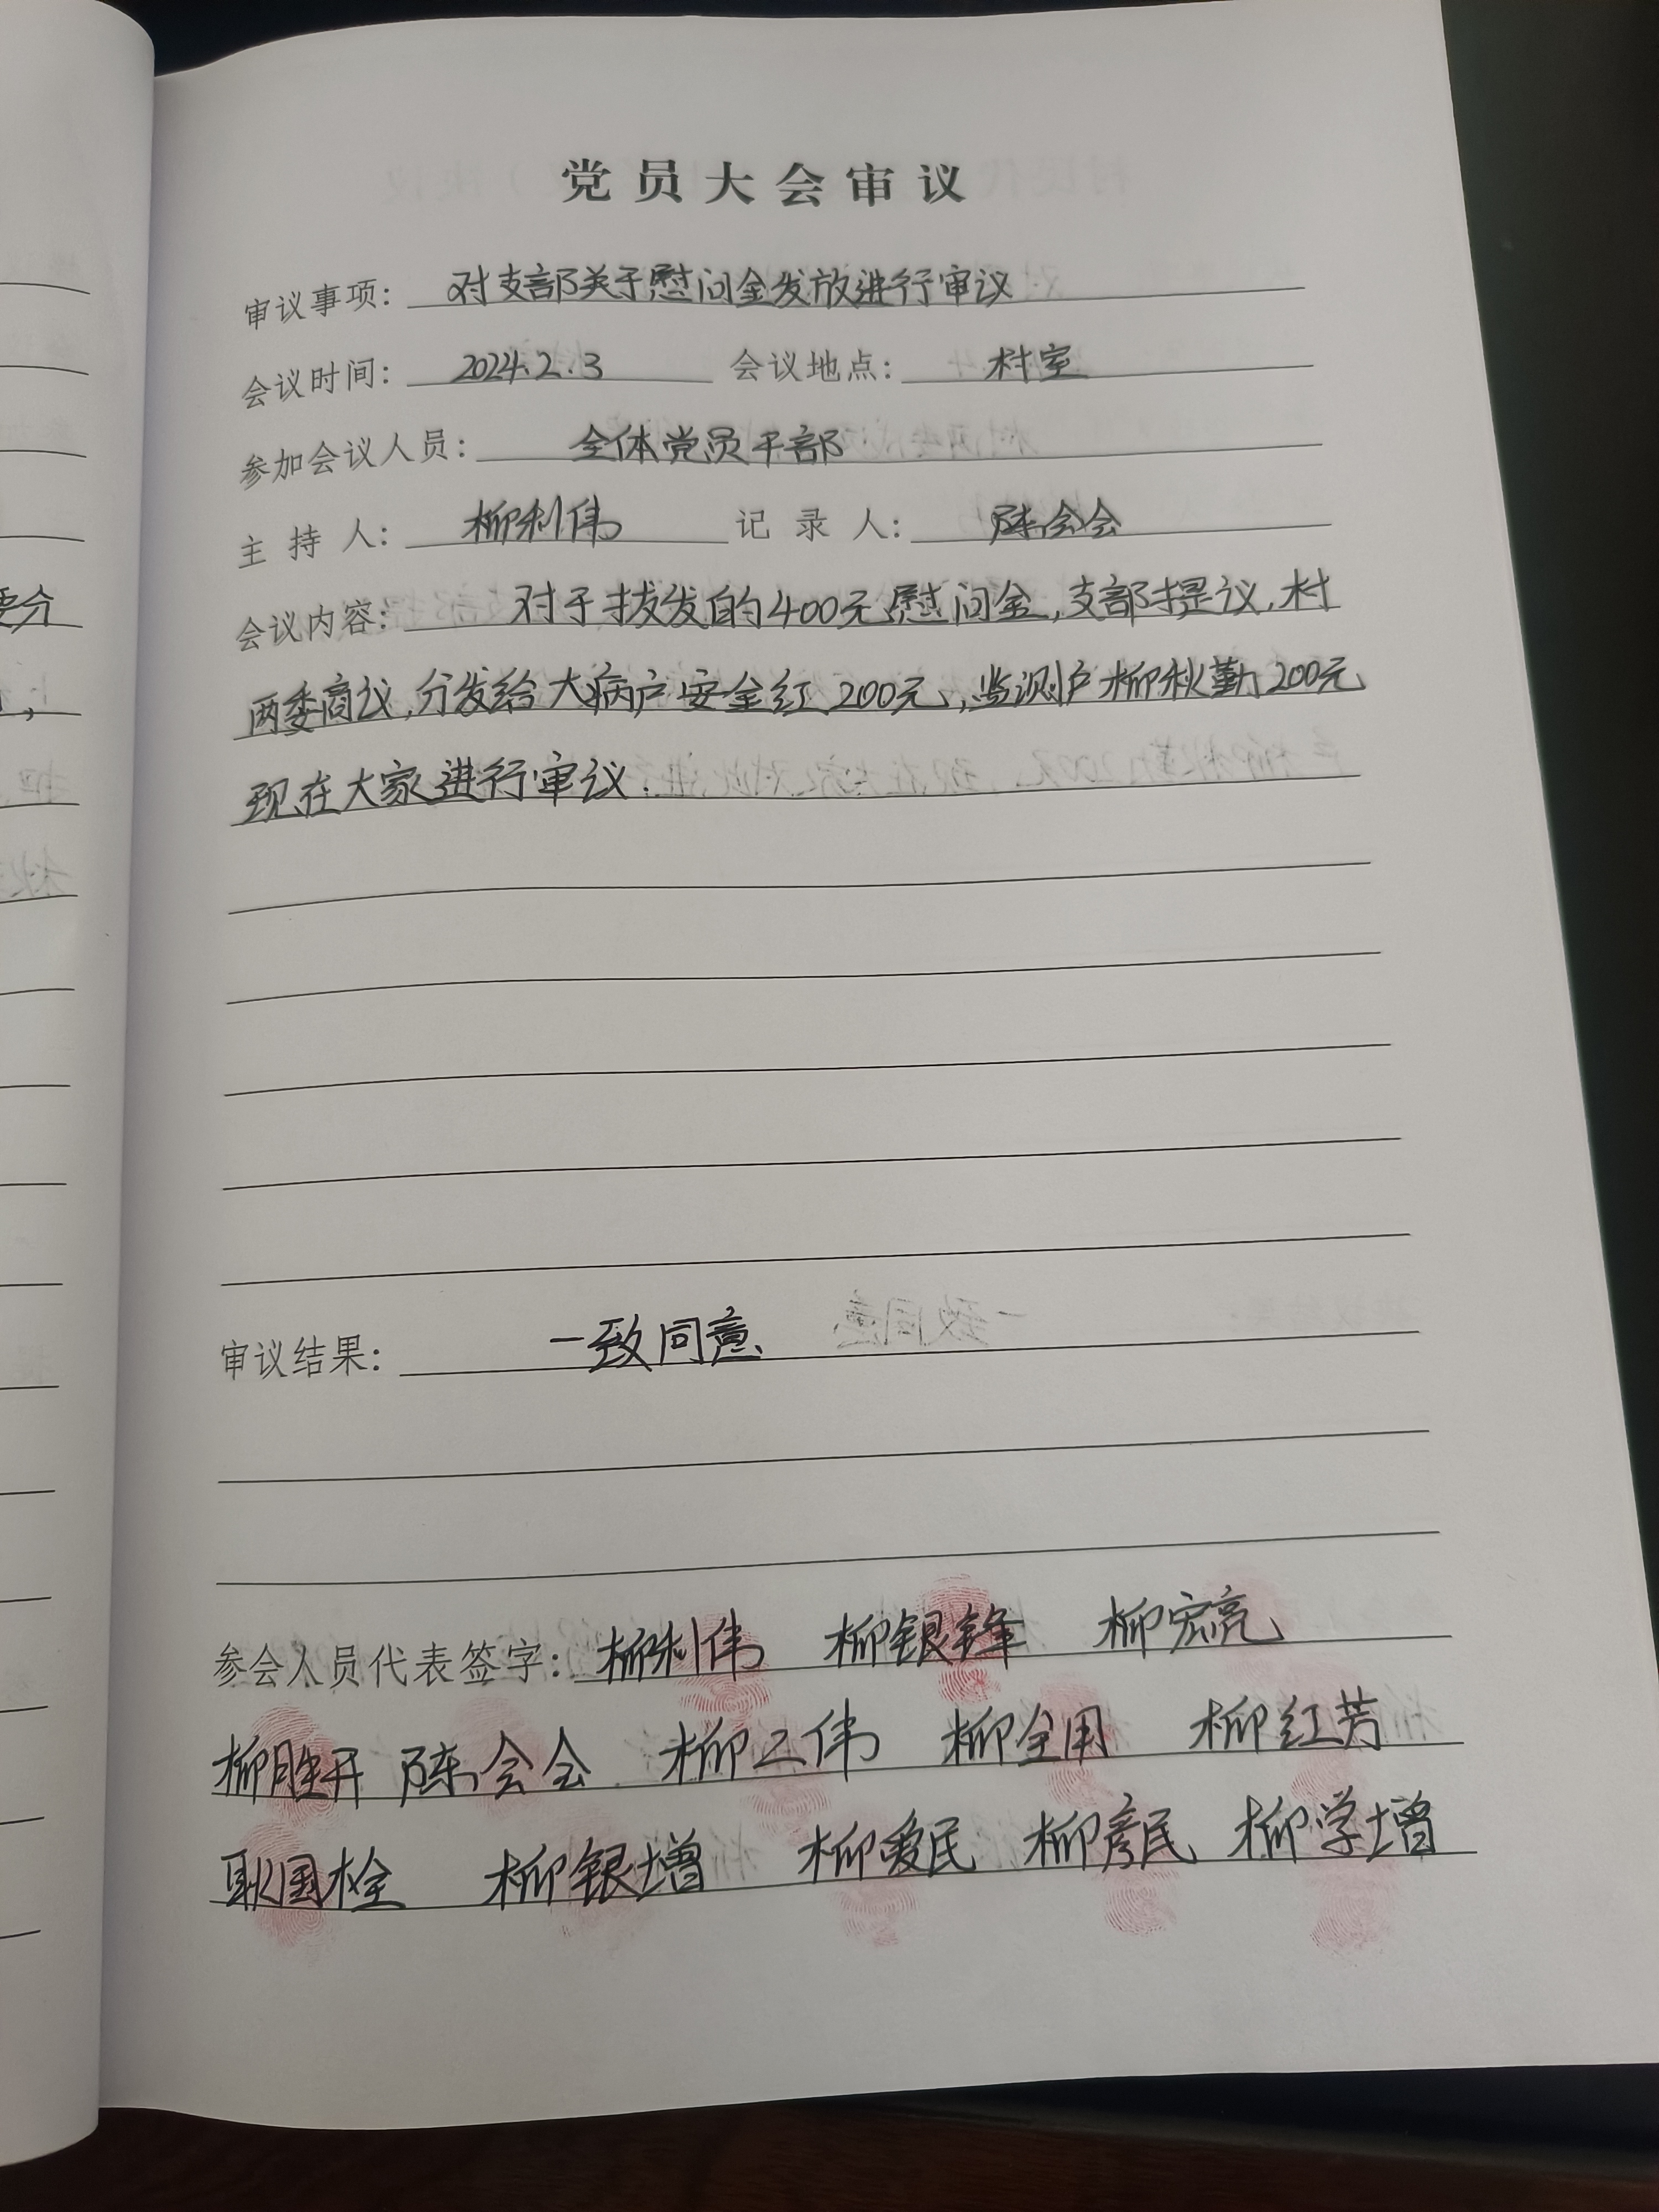 党员大会审议
审议事项: 对支部关于慰问金发放进行审议
会议时间: 2024.2.3 会议地点: 村室
参加会议人员: 全体党员干部
主持人: 柳利伟 记录人: 陈会会
会议内容: 对于拔发的400元慰问金,支部提议,村
两委商议,分发给大病户安金红200元,监测户柳秋勤200元
现在大家进行审议.
审议结果: 一致同意
参会人员代表签字: 柳利伟 柳银锋 柳宏亮
柳胜开 陈会会 柳二伟 柳全用 柳红芳
耿国栓 柳银增 柳爱民 柳彦民 柳学增